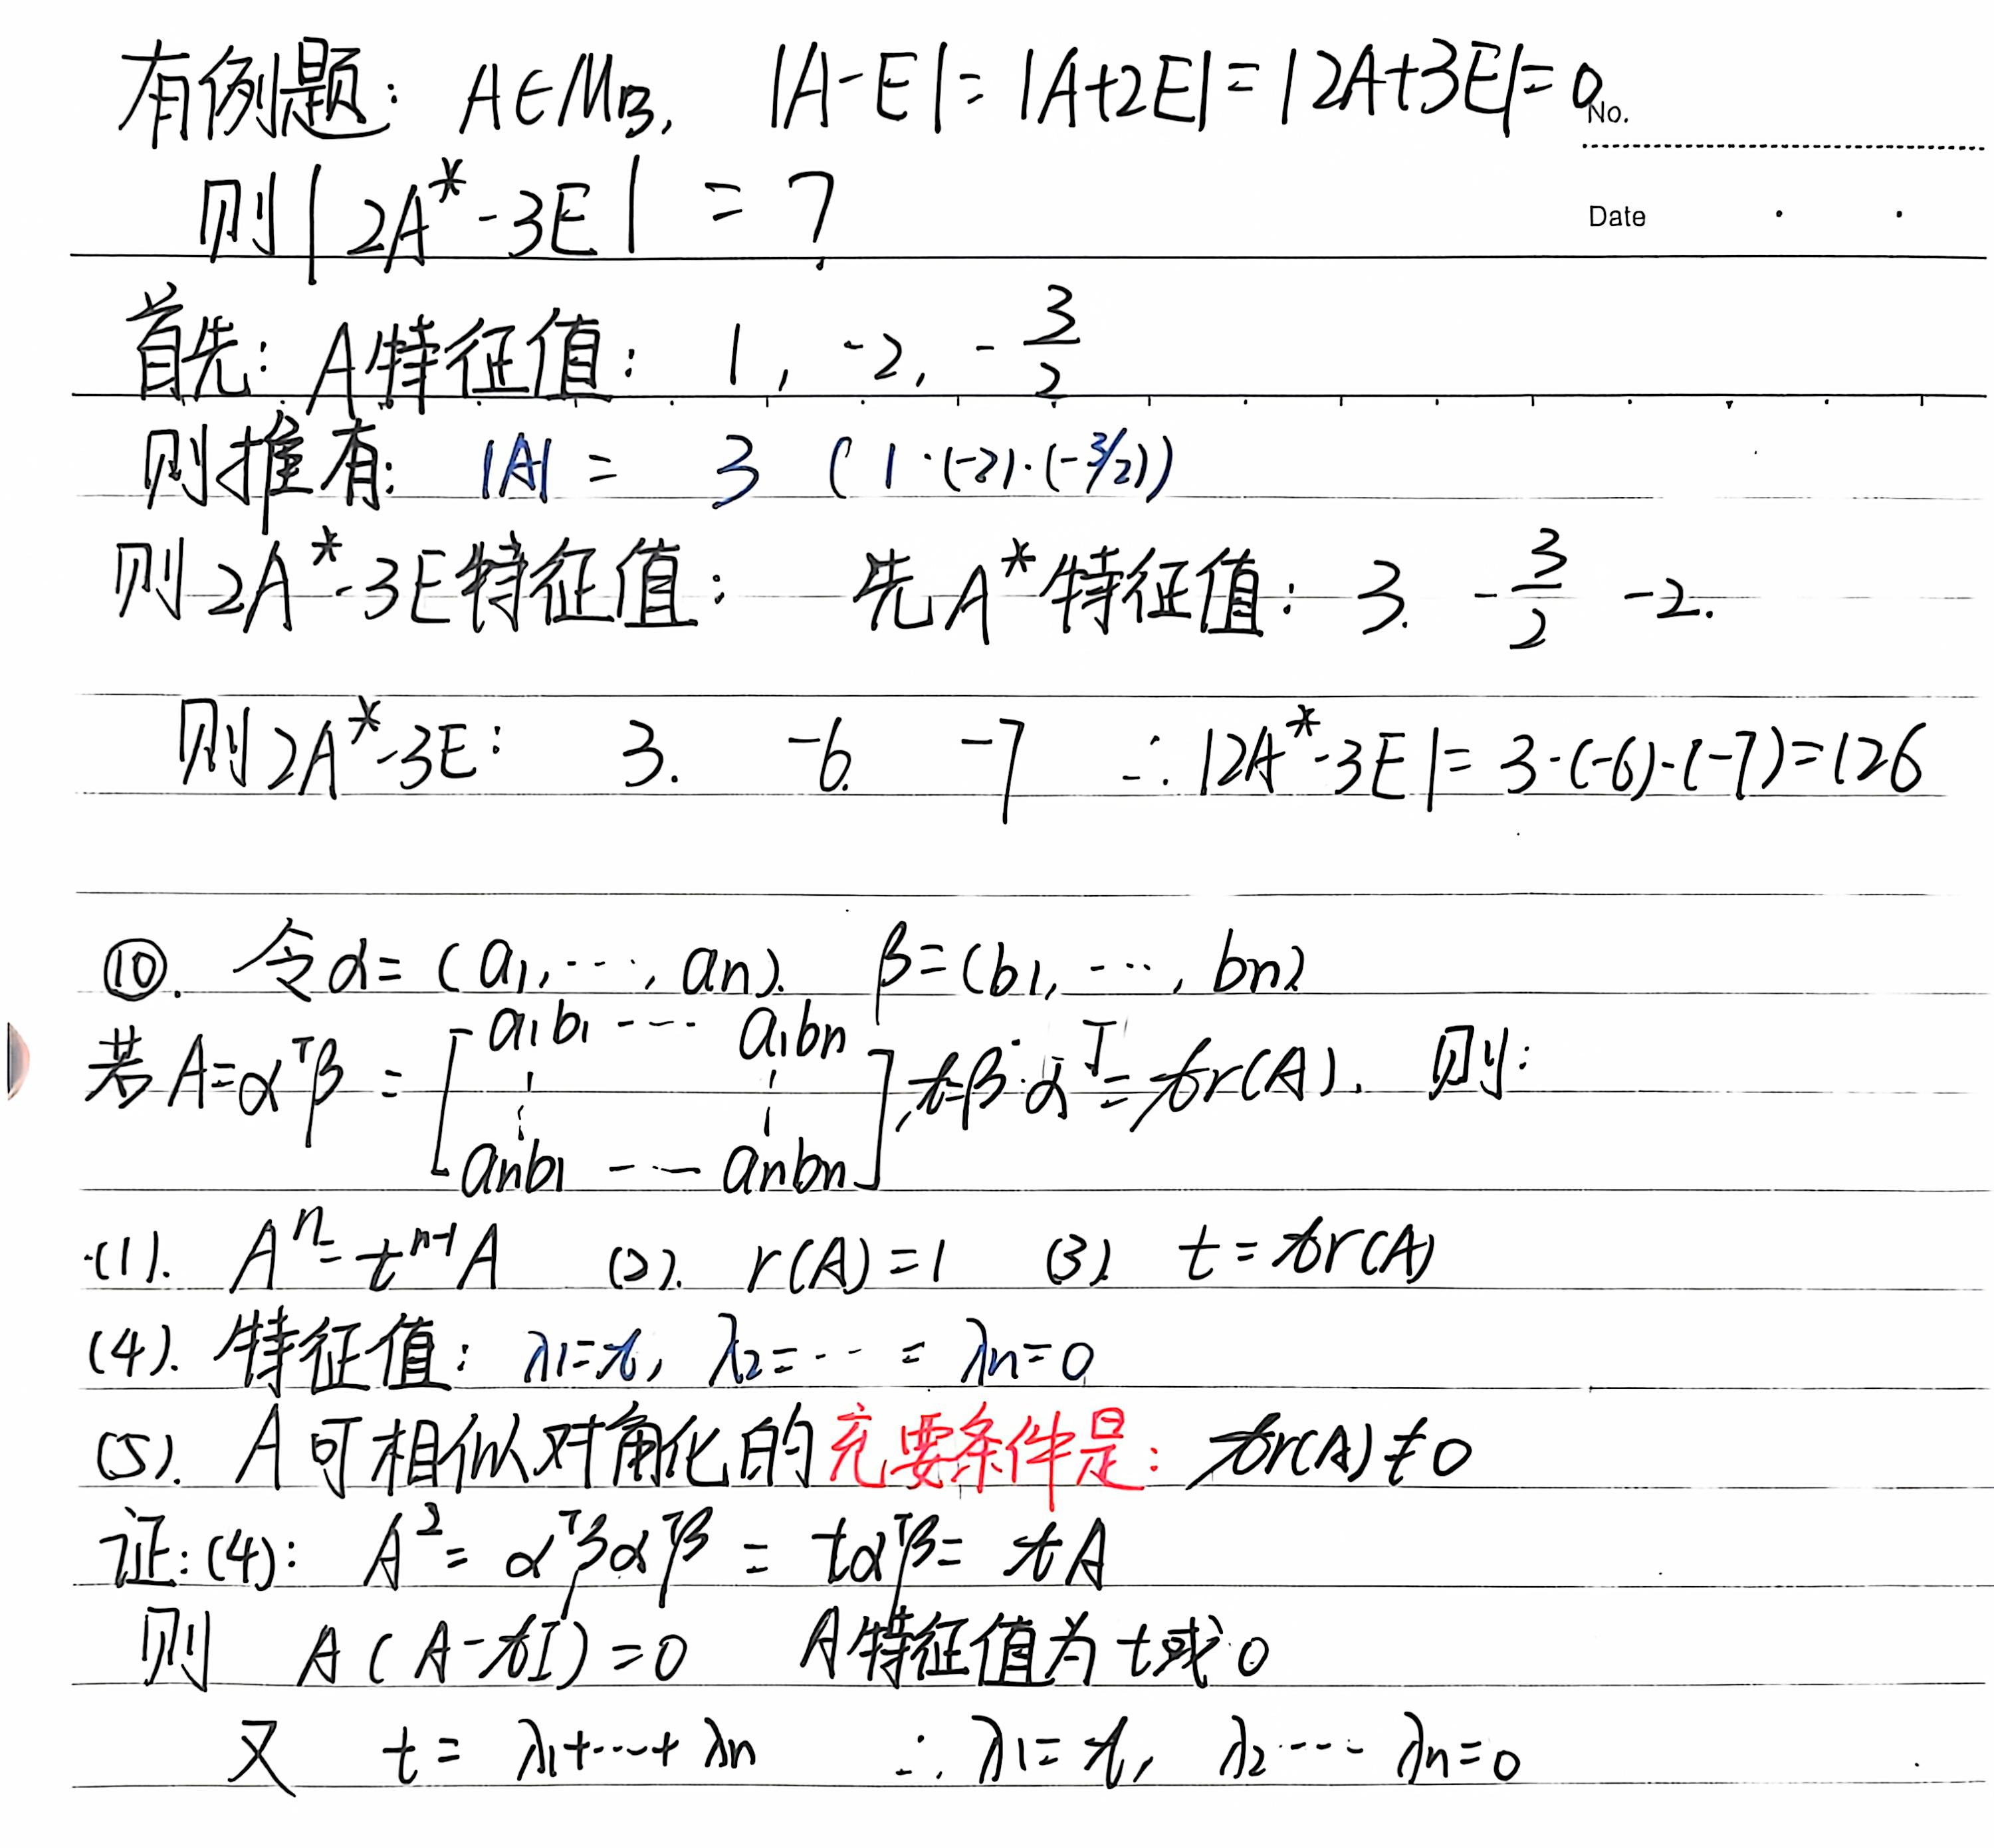 有例题: A∈M3, |A-E|=|A+2E|=|2A+3E|=0
No.
则|2A*-3E| = ?
Date
首先: A特征值: 1, -2, -3/2
则推有: |A| = 3 (1·(-2)·(-3/2))
则2A*-3E特征值: 先A*特征值: 3. -3/2 -2.
则2A*-3E: 3. -6. -7 ∴|2A*-3E|= 3·(-6)·(-7)=126
⑩. 令α=(a1,…,an). β=(b1,…,bn)
若A=αᵀβ = [a1b1 ---- a1bn ⋮ ⋮ anb1 ---- anbn], t=β·αᵀ=tr(A). 则:
(1). Aⁿ=tⁿ⁻¹A (2). r(A)=1 (3) t=tr(A)
(4). 特征值: λ1=t, λ2=…=λn=0
(5). A可相似对角化的充要条件是: tr(A)≠0
证:(4): A²= αᵀβαᵀβ = tαᵀβ= tA
则 A(A-tI)=0 A特征值为t或0
又 t= λ1+……+λn ∴ λ1=t, λ2---- λn=0